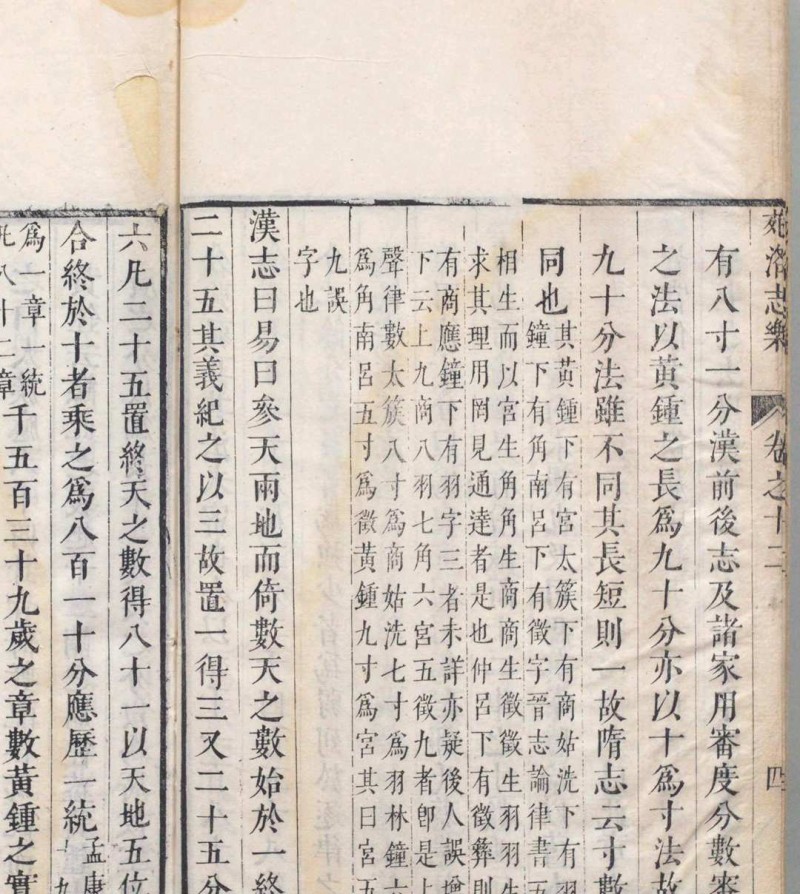 苑洛志樂
卷之十二
四
有八寸一分漢前後志及諸家用審度分數
之法以黃鍾之長爲九十分亦以十爲寸法故
九十分法雖不同其長短則一故隋志云寸數
同也
其黃鍾下有宮太簇下有商姑洗下有羽
鍾下有角南呂下有徵字晉志論律書五
相生而以宮生角角生商商生徵徵生羽羽生
求其理用罔見通達者是也仲呂下有徵蕤則
有商應鍾下有羽字三者未詳亦疑後人誤增
下云上九商八羽七角六宮五徵九者卽是上
聲律數太簇八寸爲商姑洗七寸爲羽林鍾六
爲角南呂五寸爲徵黃鍾九寸爲宮其曰宮五
九誤
字也
漢志曰易曰參天兩地而倚數天之數始於一終
二十五其義紀之以三故置一得三又二十五分
六凡二十五置終天之數得八十一以天地五位
合終於十者乘之爲八百一十分應歷一統
孟康
十九
爲一章一統
凡八十二章
千五百三十九歲之章數黃鍾之實